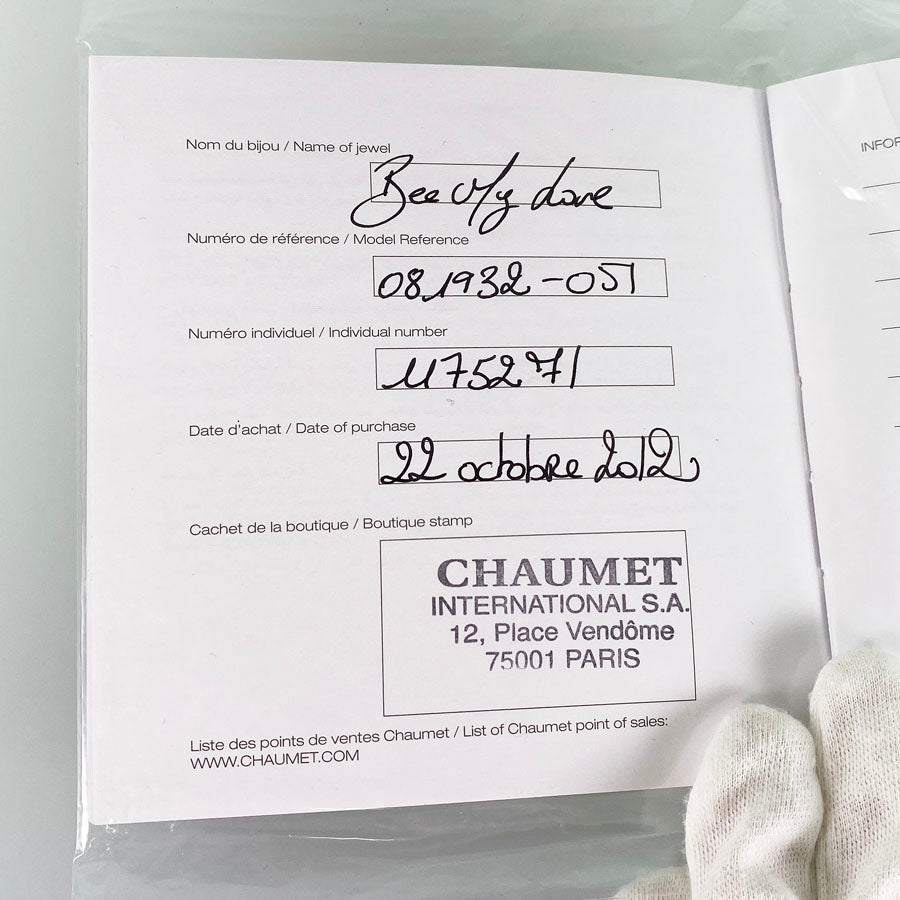 Nom du bijou / Name of jewel
Bee My Love
Numéro de référence / Model Reference
081932-051
Numéro individuel / Individual number
1175271
Date d'achat / Date of purchase
22 octobre 2012
Cachet de la boutique / Boutique stamp
CHAUMET
INTERNATIONAL S.A.
12, Place Vendôme
75001 PARIS
Liste des points de ventes Chaumet / List of Chaumet point of sales:
WWW.CHAUMET.COM